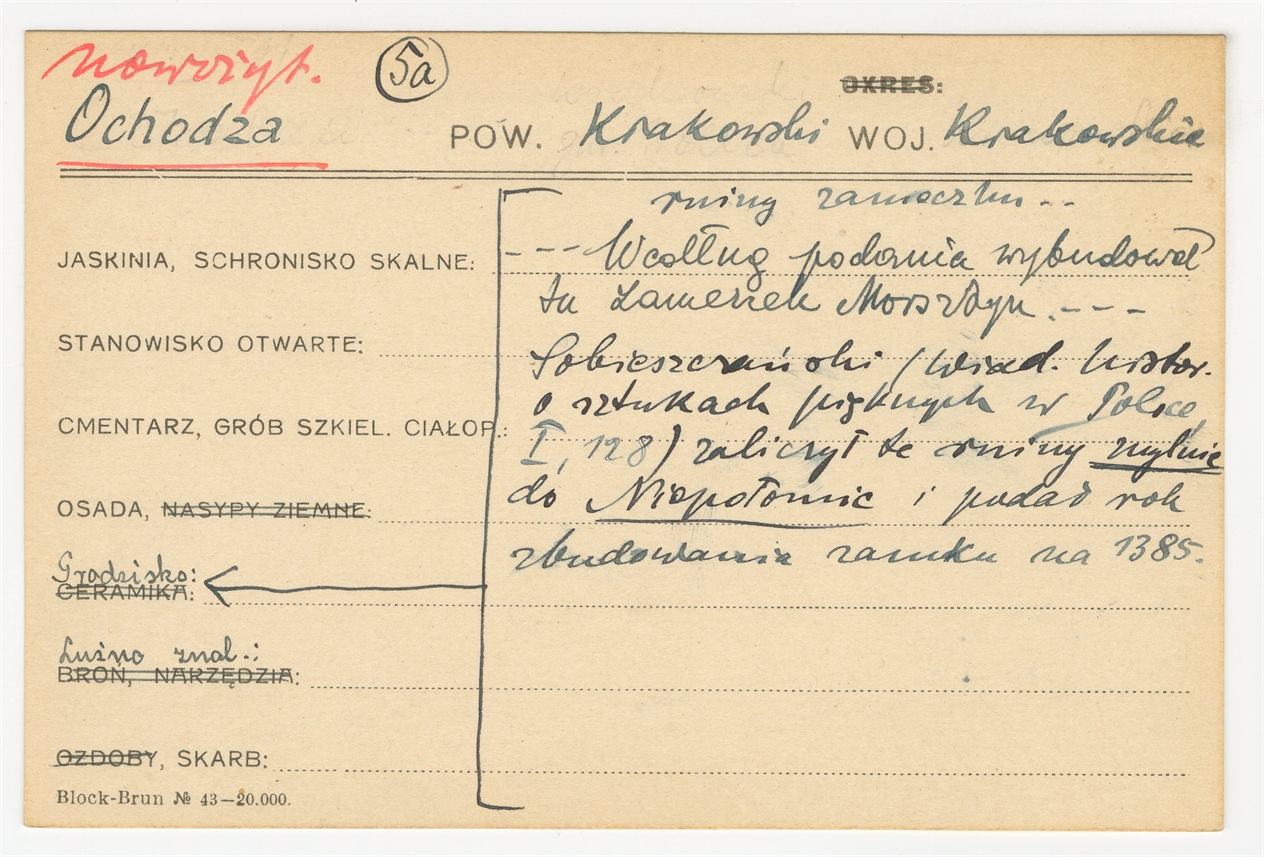 nowożyt.
5a
OKRES:
Ochodza POW. Krakowski WOJ. Krakowskie
ruiny zameczku --
JASKINIA, SCHRONISKO SKALNE: --- Według podania wybudował
tu zameczek Morsztyn. ---
STANOWISKO OTWARTE: Sobieszczański (Wiad. histor.
o sztukach pięknych w Polsce,
CMENTARZ, GRÓB SZKIEL. CIAŁOP.: I, 128) zaliczył te ruiny mylnie
OSADA, NASYPY ZIEMNE: do Niepołomic i podał rok
zbudowania zamku na 1385.
Grodzisko:
CERAMIKA:
Luźno znal.:
BROŃ, NARZĘDZIA:
OZDOBY, SKARB:
Block-Brun № 43—20.000.